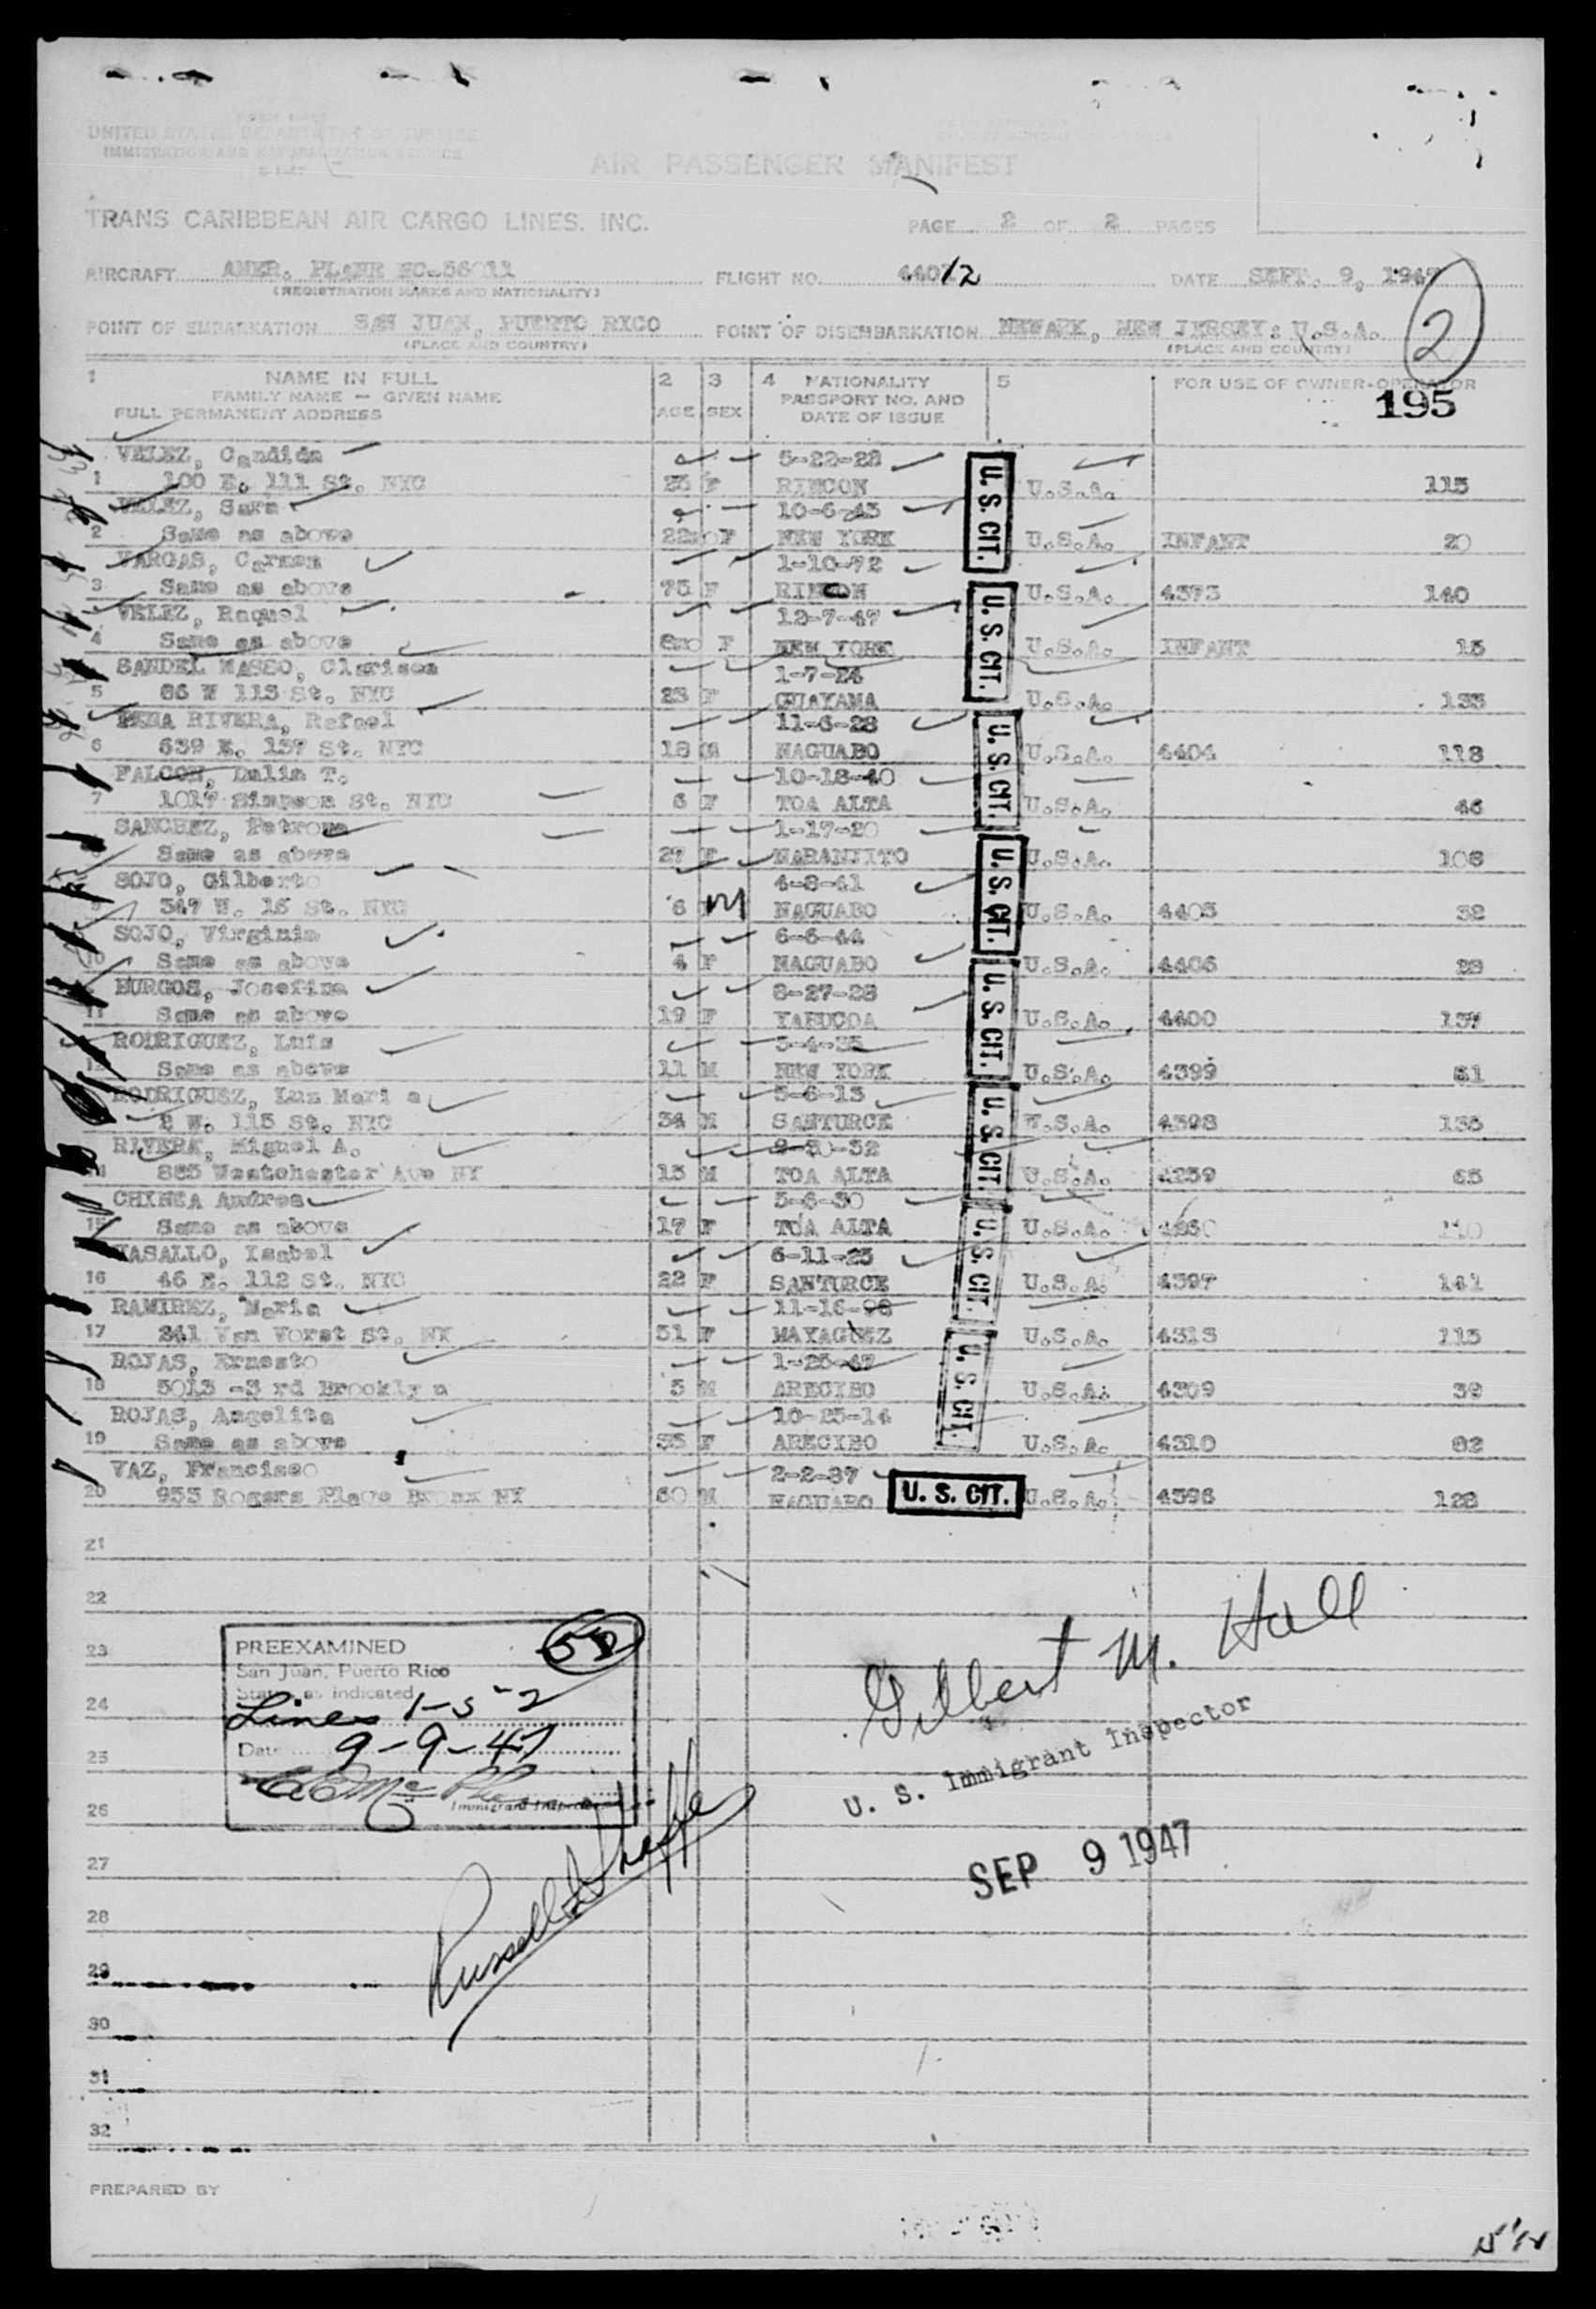 UNITED STATES DEPARTMENT OF JUSTICE
IMMIGRATION AND NATURALIZATION SERVICE
AIR PASSENGER MANIFEST
TRANS CARIBBEAN AIR CARGO LINES, INC.
PAGE 2 OF 2 PAGES
AIRCRAFT AMER. PLANE NC-56011 FLIGHT NO. DATE SEPT. 9, 1947
(REGISTRATION MARKS AND NATIONALITY)
POINT OF EMBARKATION SAN JUAN, PUERTO RICO POINT OF DISEMBARKATION NEWARK, NEW JERSEY: U.S.A. 2
(PLACE AND COUNTRY) (PLACE AND COUNTRY)
1 NAME IN FULL 2 3 4 NATIONALITY 5 FOR USE OF OWNER-OPERATOR
FAMILY NAME — GIVEN NAME PASSPORT NO. AND 195
FULL PERMANENT ADDRESS AGE SEX DATE OF ISSUE
VELEZ, Candida 5-22-28
1 100 E. 111 St. NYC F RINCON U.S.A. 115
VELEZ, Sara 10-6-45
2 Same as above 22mo F NEW YORK U.S.A. INFANT 20
VARGAS, Carmen 1-10-72
3 Same as above 75 F RINCON U.S.A. 4373 140
VELEZ, Raquel 12-7-47
4 Same as above 8mo F NEW YORK U.S.A. INFANT 15
SANDEL MASSO, Clarissa 1-7-24
5 86 W 113 St. NYC 23 F GUAYAMA U.S.A. 133
PENA RIVERA, Rafael 11-6-28
6 639 E. 137 St. NYC 18 M NAGUABO U.S.A. 4404 118
FALCON, Dalia T. 10-18-40
7 1017 Simpson St. NYC 6 F TOA ALTA U.S.A. 46
SANCHEZ, Petrona 1-17-20
8 Same as above 27 F NARANJITO U.S.A. 108
SOJO, Gilberto 4-8-41
9 347 W. 16 St. NYC 6 M NAGUABO U.S.A. 4405 52
SOJO, Virginia 6-6-44
10 Same as above 4 F NAGUABO U.S.A. 4406 28
BURGOS, Josefina 8-27-28
11 Same as above 19 F YABUCOA U.S.A. 4400 137
RODRIGUEZ, Luis 5-4-36
12 Same as above 11 M NEW YORK U.S.A. 4399 81
RODRIGUEZ, Luz Mari a 5-6-13
2 W. 113 St. NYC 34 M SANTURCE U.S.A. 4398 135
RIVERA, Miguel A.
885 Westchester Ave NY 15 M TOA ALTA U.S.A. 4259 65
CHINEA Andrea 5-6-30
15 Same as above 17 F TOA ALTA U.S.A. 4260 110
VASALLO, Isabel 6-11-25
16 46 E. 112 St. NYC 22 F SANTURCE U.S.A. 4397 141
RAMIREZ, Maria 11-16-98
17 241 Van Vorst St. NY 51 F MAYAGUEZ U.S.A. 4313 115
ROJAS, Ernesto 1-25-47
18 5013 -3 rd Brookly n 5 M ARECIBO U.S.A. 4309 39
ROJAS, Angelita 10-25-14
19 Same as above 33 F ARECIBO U.S.A. 4310 92
VAZ, Francisco 2-2-87
20 953 Rogers Place Bronx NY 60 M NAGUABO U.S.A. 4396 128
U.S. CIT.
U.S. CIT.
U.S. CIT.
U.S. CIT.
U.S. CIT.
U.S. CIT.
U.S. CIT.
U.S. CIT.
U. S. CIT.
21
22
23
24
25
26
27
28
29
30
31
32
PREEXAMINED
San Juan, Puerto Rico
Status as indicated
Lines 1-52
Date 9-9-47
Immigrant Inspector
Gilbert M. Hall
U. S. Immigrant Inspector
SEP 9 1947
PREPARED BY